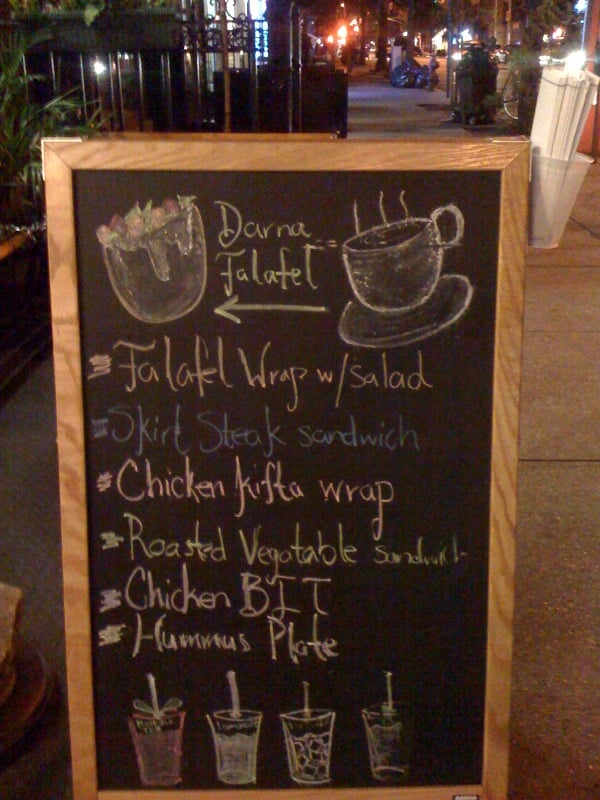 Darna
Falafel
Falafel Wrap w/salad
Skirt Steak sandwich
Chicken kifta wrap
Roasted Vegatable sandwich
Chicken BLT
Hummus Plate